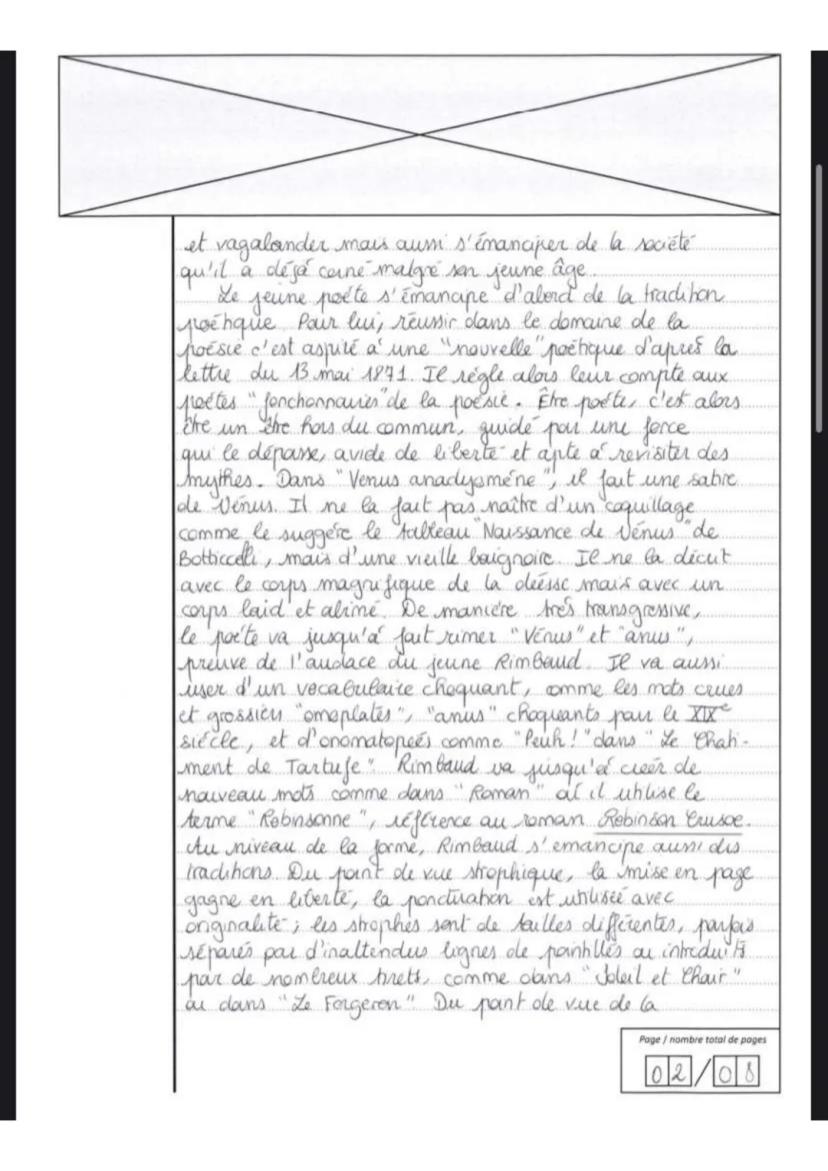 et vagabonder mais aussi s'émanciper de la société
qu'il a déjà cerné malgré son jeune âge.
Le jeune poète s'émancipe d'abord de la tradition
poétique. Pour lui, réussir dans le domaine de la
poésie c'est aspiré à une "nouvelle" poétique d'après la
lettre du 13 mai 1871. Il règle alors leur compte aux
poètes "fonctionnaires" de la poésie. Être poète, c'est alors
être un être hors du commun, guidé par une force
qui le dépasse, avide de liberté et apte à revisiter des
mythes. Dans "Venus anadyomène", il fait une satire
de Vénus. Il ne la fait pas naître d'un coquillage
comme le suggère le tableau "Naissance de Vénus" de
Botticcelli, mais d'une vieille baignoire. Il ne la décrit
avec le corps magnifique de la déesse mais avec un
corps laid et abimé. De manière très transgressive,
le poète va jusqu'à fait rimer "Vénus" et "anus",
preuve de l'audace du jeune Rimbaud. Il va aussi
user d'un vocabulaire choquant, comme les mots crues
et grossiers "omoplates", "anus" choquants pour le XIXe
siècle, et d'onomatopées comme "Peuh!" dans "Le Chati-
ment de Tartufe". Rimbaud va jusqu'à créer de
nouveau mots comme dans "Roman" où il utilise le
terme "Robinsonne", référence au roman Robinson Crusoe.
Au niveau de la forme, Rimbaud s'émancipe aussi des
traditions. Du point de vue strophique, la mise en page
gagne en liberté, la ponctuation est utilisée avec
originalité ; les strophes sont de tailles différentes, parfois
séparés par d'inattendus lignes de pointillés ou introduits
par de nombreux tirets, comme dans "Soleil et Chair"
ou dans "Le Forgeron". Du point de vue de la
Page / nombre total de pages
02/08